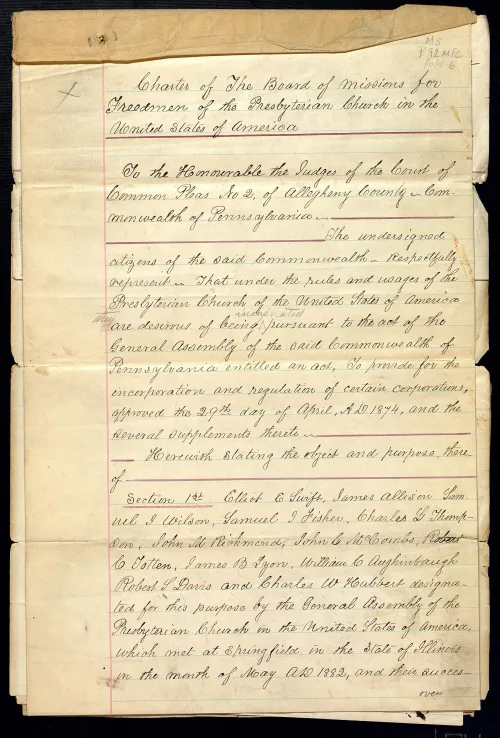 MS
P92MPC
fold. 6
Charter of The Board of missions for
Freedmen of the Presbyterian Church in the
United States of America
To the Honourable the Judges of the Court of
Common Pleas No 2, of Allegheny County – Com-
monwealth of Pennsylvania –
The undersigned
citizens of the said Commonwealth – Respectfully
represent – That under the rules and usages of the
Presbyterian Church of the United States of America
they incorporated
are desirous of being pursuant to the act of the
General Assembly of the said Commonwealth of
Pennsylvania entitled an act, To provide for the
encorporation and regulation of certain corporations,
approved the 29th day of April, A.D 1874, and the
several supplements thereto –
Herewith stating the object and purpose there
of
Section 1st Elliot E Swift, James Allison Sam-
uel J Wilson, Samuel J Fisher, Charles L Thomp-
son, John M Richmond, John C McCombs, Robert
C Totten, James B Lyon, William C Aughinbaugh
Robert S Davis and Charles W Hubbert designa-
ted for this purpose by the General Assembly of the
Presbyterian Church in the United States of America,
which met at Springfield in the State of Illinois
in the month of May AD 1882, and their succes-
over